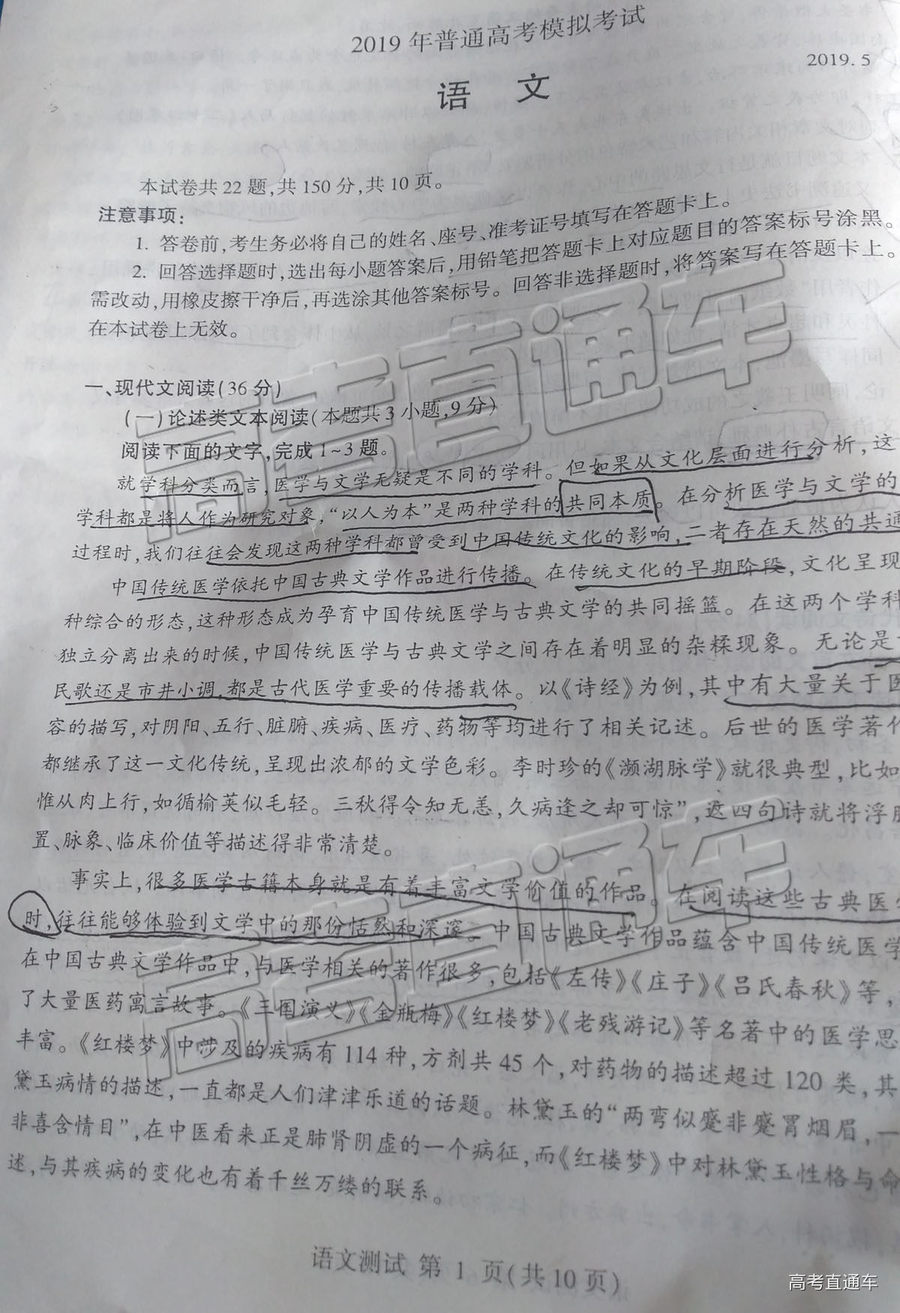 2019年普通高考模拟考试
2019.5
语 文
本试卷共22题,共150分,共10页。
注意事项:
1. 答卷前,考生务必将自己的姓名、座号、准考证号填写在答题卡上。
2. 回答选择题时,选出每小题答案后,用铅笔把答题卡上对应题目的答案标号涂黑。
需改动,用橡皮擦干净后,再选涂其他答案标号。回答非选择题时,将答案写在答题卡上。
在本试卷上无效。
一、现代文阅读(36分)
(一)论述类文本阅读(本题共3小题,9分)
阅读下面的文字,完成1~3题。
就学科分类而言,医学与文学无疑是不同的学科。但如果从文化层面进行分析,这
学科都是将人作为研究对象,“以人为本”是两种学科的共同本质。在分析医学与文学的
过程时,我们往往会发现这两种学科都曾受到中国传统文化的影响,二者存在天然的共通
中国传统医学依托中国古典文学作品进行传播。在传统文化的早期阶段,文化呈现
种综合的形态,这种形态成为孕育中国传统医学与古典文学的共同摇篮。在这两个学科
独立分离出来的时候,中国传统医学与古典文学之间存在着明显的杂糅现象。无论是
民歌还是市井小调,都是古代医学重要的传播载体。以《诗经》为例,其中有大量关于医
容的描写,对阴阳、五行、脏腑、疾病、医疗、药物等均进行了相关记述。后世的医学著作
都继承了这一文化传统,呈现出浓郁的文学色彩。李时珍的《濒湖脉学》就很典型,比如
惟从肉上行,如循榆荚似毛轻。三秋得令知无恙,久病逢之却可惊”,这四句诗就将浮脉
置、脉象、临床价值等描述得非常清楚。
事实上,很多医学古籍本身就是有着丰富文学价值的作品。在阅读这些古典医
时,往往能够体验到文学中的那份恬然和深邃。中国古典文学作品蕴含中国传统医学
在中国古典文学作品中,与医学相关的著作很多,包括《左传》《庄子》《吕氏春秋》等,
了大量医药寓言故事。《三国演义》《金瓶梅》《红楼梦》《老残游记》等名著中的医学思
丰富。《红楼梦》中涉及的疾病有114种,方剂共45个,对药物的描述超过120类,其
黛玉病情的描述,一直都是人们津津乐道的话题。林黛玉的“两弯似蹙非蹙罥烟眉,一
非喜含情目”,在中医看来正是肺肾阴虚的一个病征,而《红楼梦》中对林黛玉性格与命
述,与其疾病的变化也有着千丝万缕的联系。
语文测试 第 1 页(共10页)
高考直通车
高考直通车
高考直通车